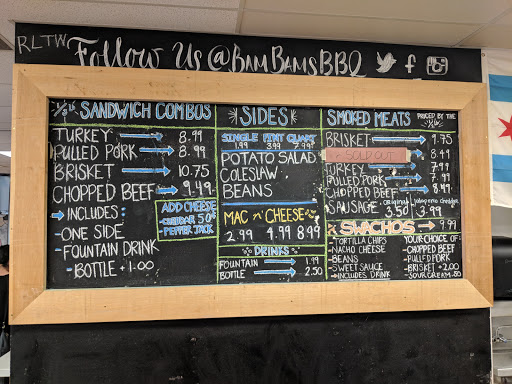 RLTW
Follow Us @BamBamsBBQ
1/3 lb SANDWICH COMBOS
TURKEY 8.99
PULLED PORK 8.99
BRISKET 10.75
CHOPPED BEEF 9.49
INCLUDES:
-ONE SIDE
-FOUNTAIN DRINK
-BOTTLE +1.00
ADD CHEESE
-CHEDDAR 50¢
-PEPPER JACK
SIDES
SINGLE PINT QUART
1.99 3.99 7.99
POTATO SALAD
COLESLAW
BEANS
MAC 'N' CHEESE
2.99 4.99 8.99
DRINKS
FOUNTAIN 1.99
BOTTLE 2.50
SMOKED MEATS PRICED BY THE 1/2 lb
BRISKET 9.75
SOLD OUT 8.49
TURKEY 7.99
PULLED PORK 7.99
CHOPPED BEEF 8.49
SAUSAGE original 3.50 jalapeno cheddar 3.99
SWACHOS 9.99
-TORTILLA CHIPS
-NACHO CHEESE
-BEANS
-SWEET SAUCE
-INCLUDES DRINK
YOUR CHOICE OF:
-CHOPPED BEEF
-PULLED PORK
-BRISKET +2.00
-SOUR CREAM .50